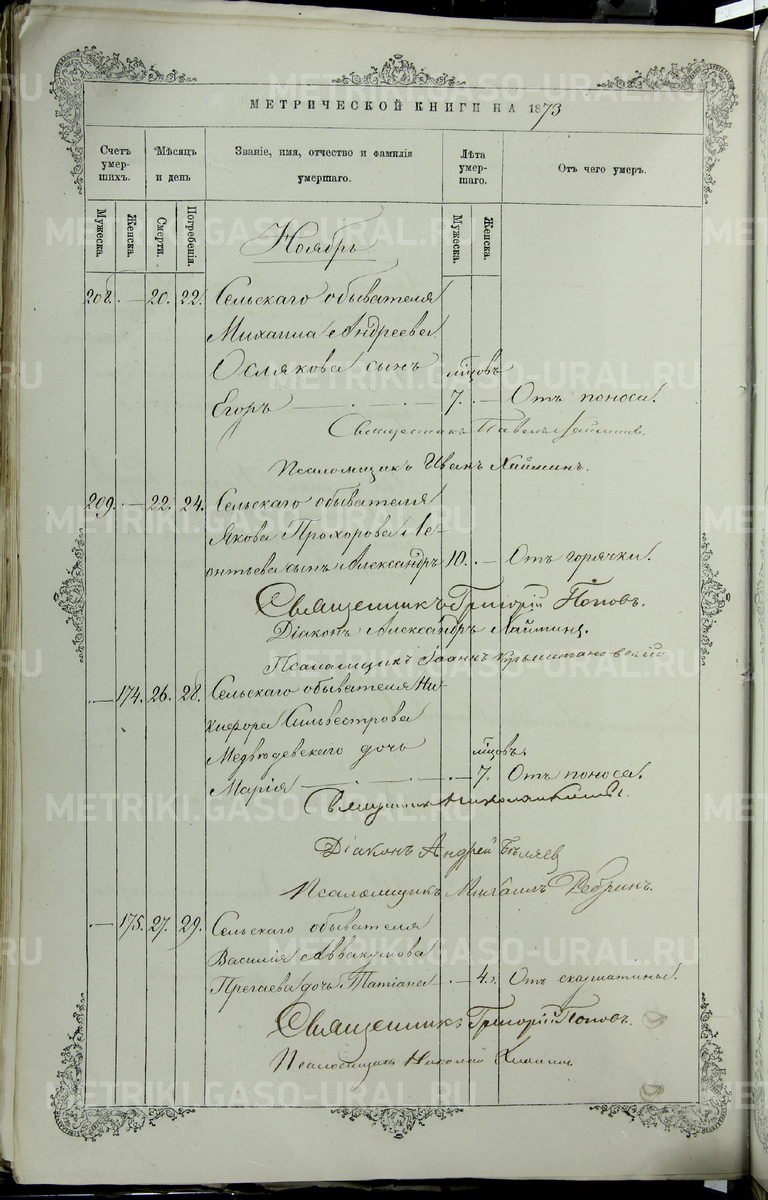 МЕТРИЧЕСКОЙ КНИГИ НА 1873
Счетъ умершихъ.
Мѣсяцъ и день
Званіе, имя, отчество и фамилія умершаго.
Лѣта умершаго.
Отъ чего умеръ.
Мужеска.
Женска.
Смерти.
Погребенія.
Мужеска.
Женска.
Ноябрь
208. — 20. 22. Сельскаго обывателя
Михаила Андреева
Ослякова сынъ мѣсцовъ
Егоръ — 7. — Отъ поноса.
Священникъ Павелъ
Псаломщикъ Иванъ Хайминъ.
209. — 22. 24. Сельскаго обывателя
Якова Прохорова Ле-
онтьева сынъ Александръ 10. — Отъ горячки.
Священникъ Григорій Поповъ.
Діаконъ Александръ Хайминъ.
Псаломщикъ Іоаннъ
— 174. 26. 28. Сельскаго обывателя Ни-
кифора Сильвестрова
Медвѣдевскаго дочь мѣсцовъ.
Марія — 7. Отъ поноса.
Священникъ
Діаконъ Андрей Бѣляев
Псаломщикъ Михаилъ Ребринъ.
— 175. 27. 29. Сельскаго обывателя
Василія Аввакумова
Прегаева дочь Татіана — 4. Отъ скарлатины.
Священникъ Григорій Поповъ.
Псаломщикъ Николай
METRIKI.GASO-URAL.RU